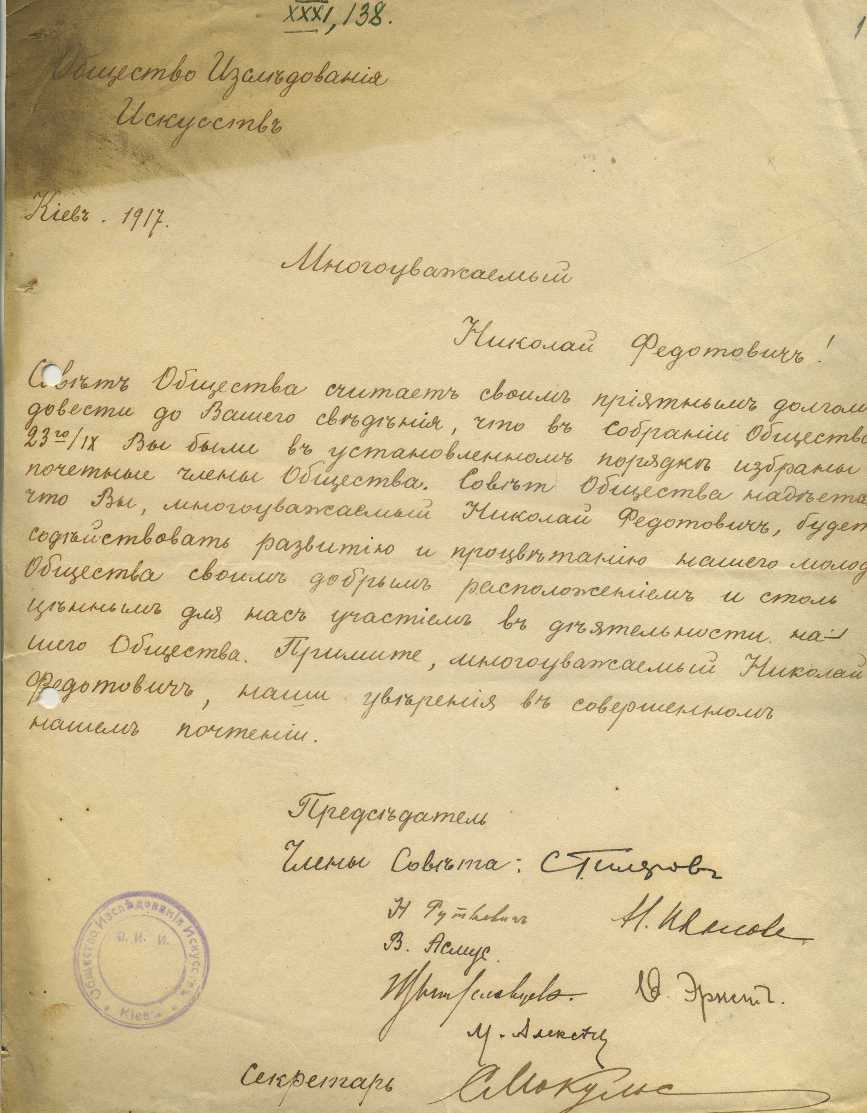 XXXI, 138.
1
Общество Изслѣдованія
Искусствъ
Кіевъ. 1917.
Многоуважаемый
Николай Федотовичъ!
Совѣтъ Общества считаетъ своимъ пріятнымъ долгом
довести до Вашего свѣдѣнія, что въ собраніи Общества
23го/IX Вы были въ установленномъ порядкѣ избраны
почетные члены Общества. Совѣт Общества надѣется
что Вы, многоуважаемый Николай Федотовичъ, будет
содѣйствовать развитію и процвѣтанію нашего молод
Общества своимъ добрымъ расположеніемъ и столь
цѣннымъ для насъ участіемъ въ дѣятельности на-
шего Общества. Примите, многоуважаемый Николай
Федотовичъ, наши увѣренія въ совершенномъ
нашемъ почтеніи.
Предсѣдатель
Члены Совѣта: С Гиляровъ
Н Руткевичъ
В. Асмус
Ѳ. Эрнстъ.
М. Алексѣ
Секретарь СМокульс
Общество Изслѣдованія Искусствъ
О. И. И.
Кіевъ